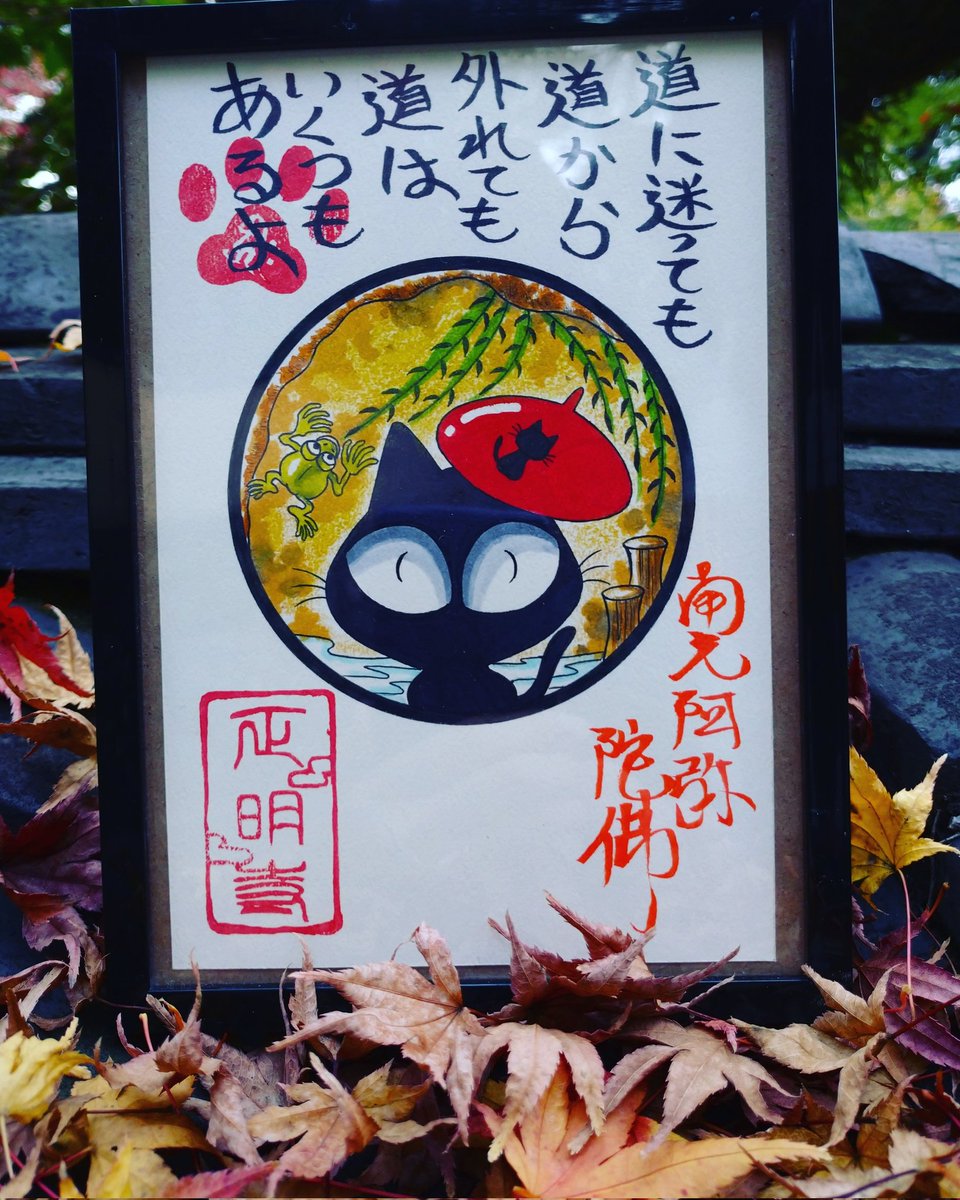 道に迷っても
道から
外れても
道は
いくつも
あるよ
南无阿弥
陀佛
正明寺